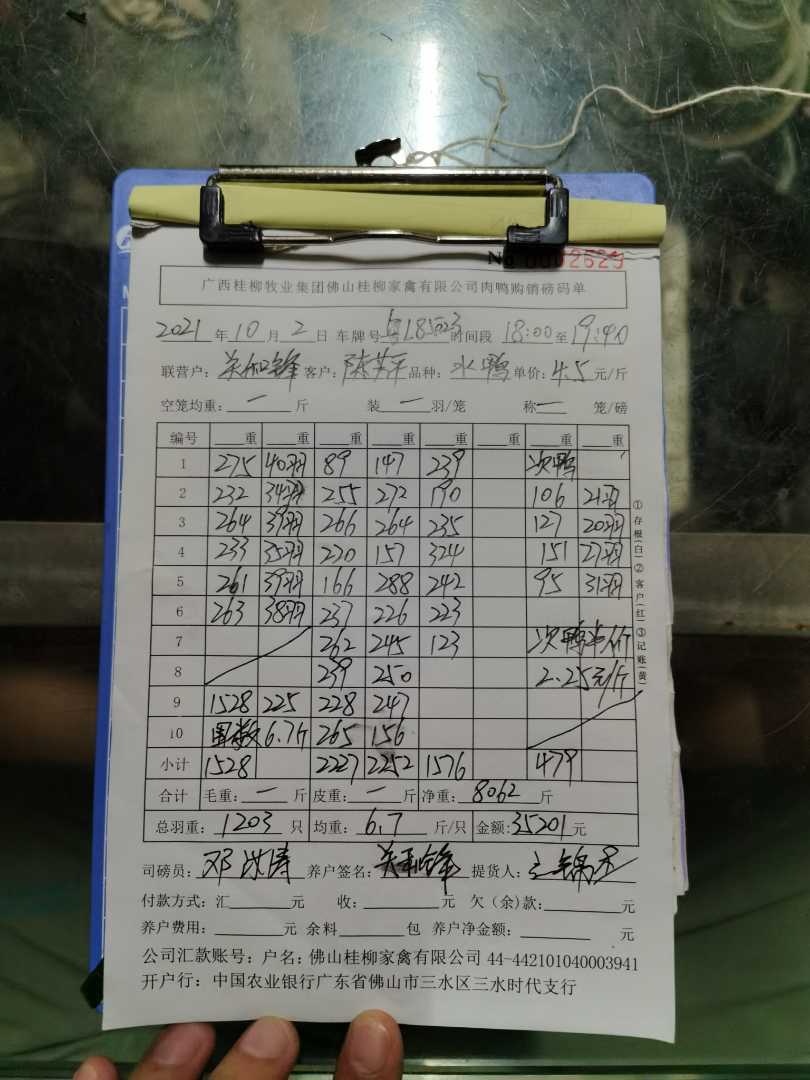 № 0002629
广西桂柳牧业集团佛山桂柳家禽有限公司肉鸭购销磅码单
2021 年 10 月 2 日 车牌号 时间段 18:00 至 19:40
联营户: 客户: 陈 品种: 水鸭 单价: 4.5 元/斤
空笼均重: 一 斤 装 一 羽/笼 称 一 笼/磅
编号 重 重 重 重 重 重 重 重
1 275 40羽 89 147 239 次鸭
2 232 34羽 255 272 190 106 21羽
3 264 39羽 266 264 235 127 20羽
4 233 35羽 220 157 324 151 27羽
5 261 39羽 166 288 242 95 31羽
6 263 38羽 237 226 223
7 262 245 123 次鸭半价
8 239 250 2.25元/斤
9 1528 225 228 247
10 6.7斤 265 156
小计 1528 2227 2252 1576 479
合计 毛重: 一 斤 皮重: 一 斤 净重: 8062 斤
总羽重: 1203 只 均重: 6.7 斤/只 金额: 35201 元
司磅员: 邓 涛 养户签名: 提货人:
付款方式: 汇 元 收: 元 欠(余)款: 元
养户费用: 元 余料 包 养户净金额: 元
公司汇款账号: 户名: 佛山桂柳家禽有限公司 44-442101040003941
开户行: 中国农业银行广东省佛山市三水区三水时代支行
①存根(白)②客户(红)③记账(黄)